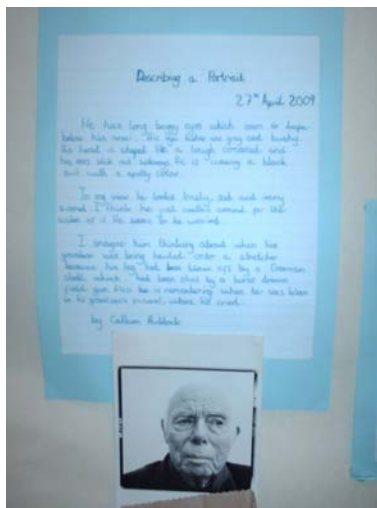 Describing a Portrait
27th April 2009
He has long beady eyes which seem to droop
below his nose. His eye brows are grey and bushy.
His head is shaped like a tough coconut and
big ears stick out sideways. He is wearing a black
suit with a spotty collar.
In my view he looks lonely, sad and very
scared. I think he just wants around for the
as if He seems to be worried.
I imagine him thinking about when his
grandson was being hauled onto a stretcher
because his leg had been blown off by a German
shell, which had been shot by a horse drawn
field gun. Also he is remembering when he was
to his grandson's funeral, where he cried.
by Callum